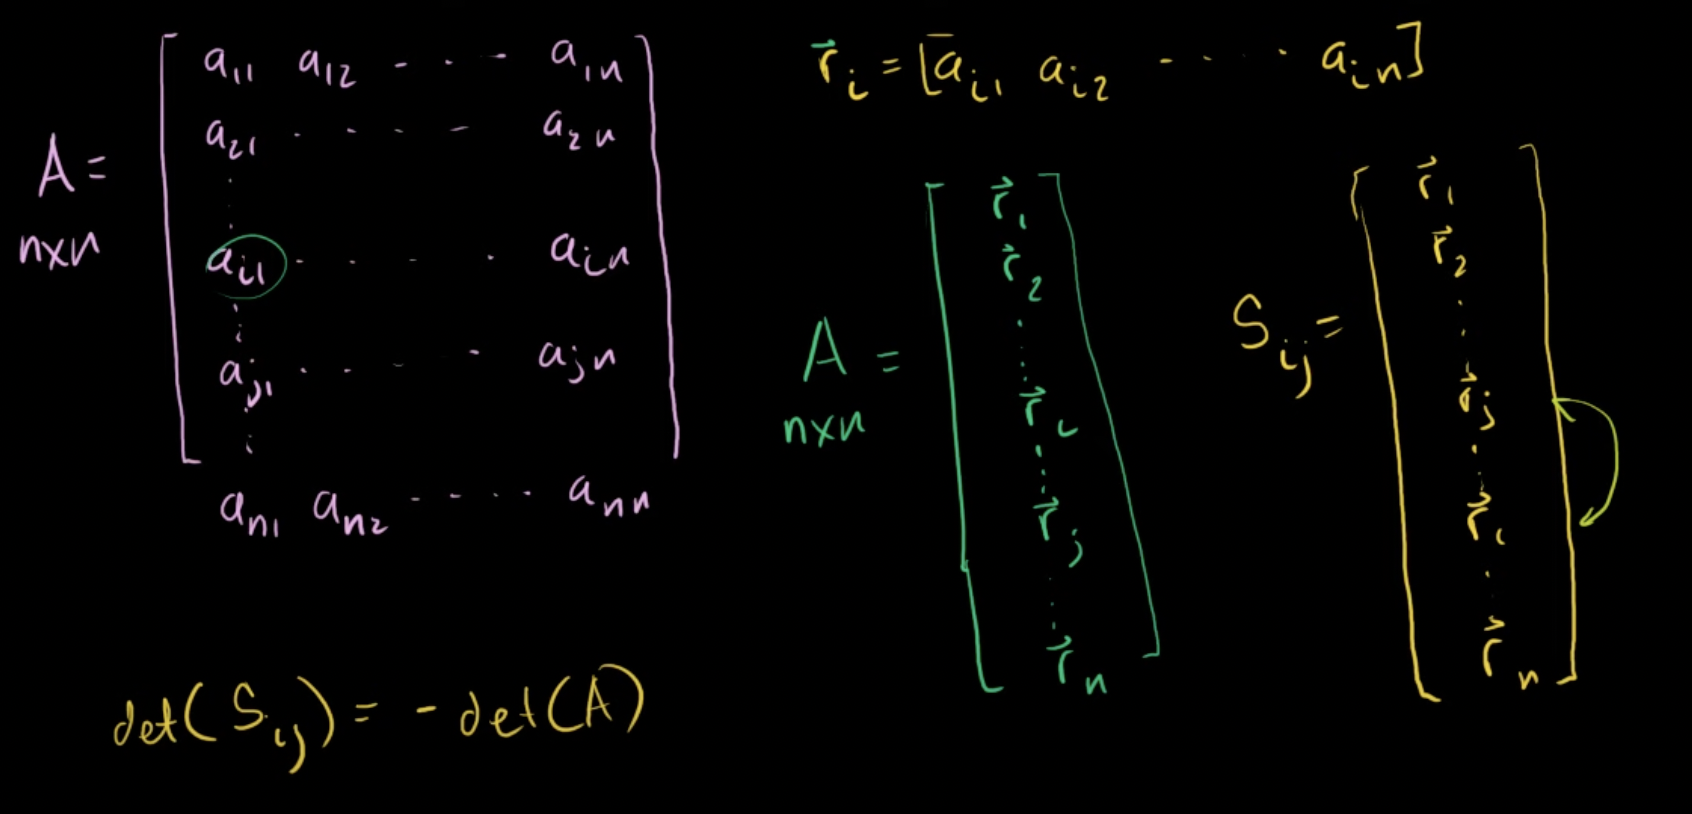 A = [ a₁₁ a₁₂ - · · - a₁ₙ ]
a₂₁ · · · - - a₂ₙ
n×n
aᵢ₁ · · · · aᵢₙ
aⱼ₁ · · - - aⱼₙ
aₙ₁ aₙ₂ - · · · aₙₙ
r⃗ᵢ = [aᵢ₁ aᵢ₂ - · · · aᵢₙ]
A = [ r⃗₁
r⃗₂
⋮
r⃗ᵢ
⋮
r⃗ⱼ
⋮
r⃗ₙ ]
n×n
Sᵢⱼ = [ r⃗₁
r⃗₂
⋮
r⃗ⱼ
⋮
r⃗ᵢ
⋮
r⃗ₙ ]
det(Sᵢⱼ) = - det(A)